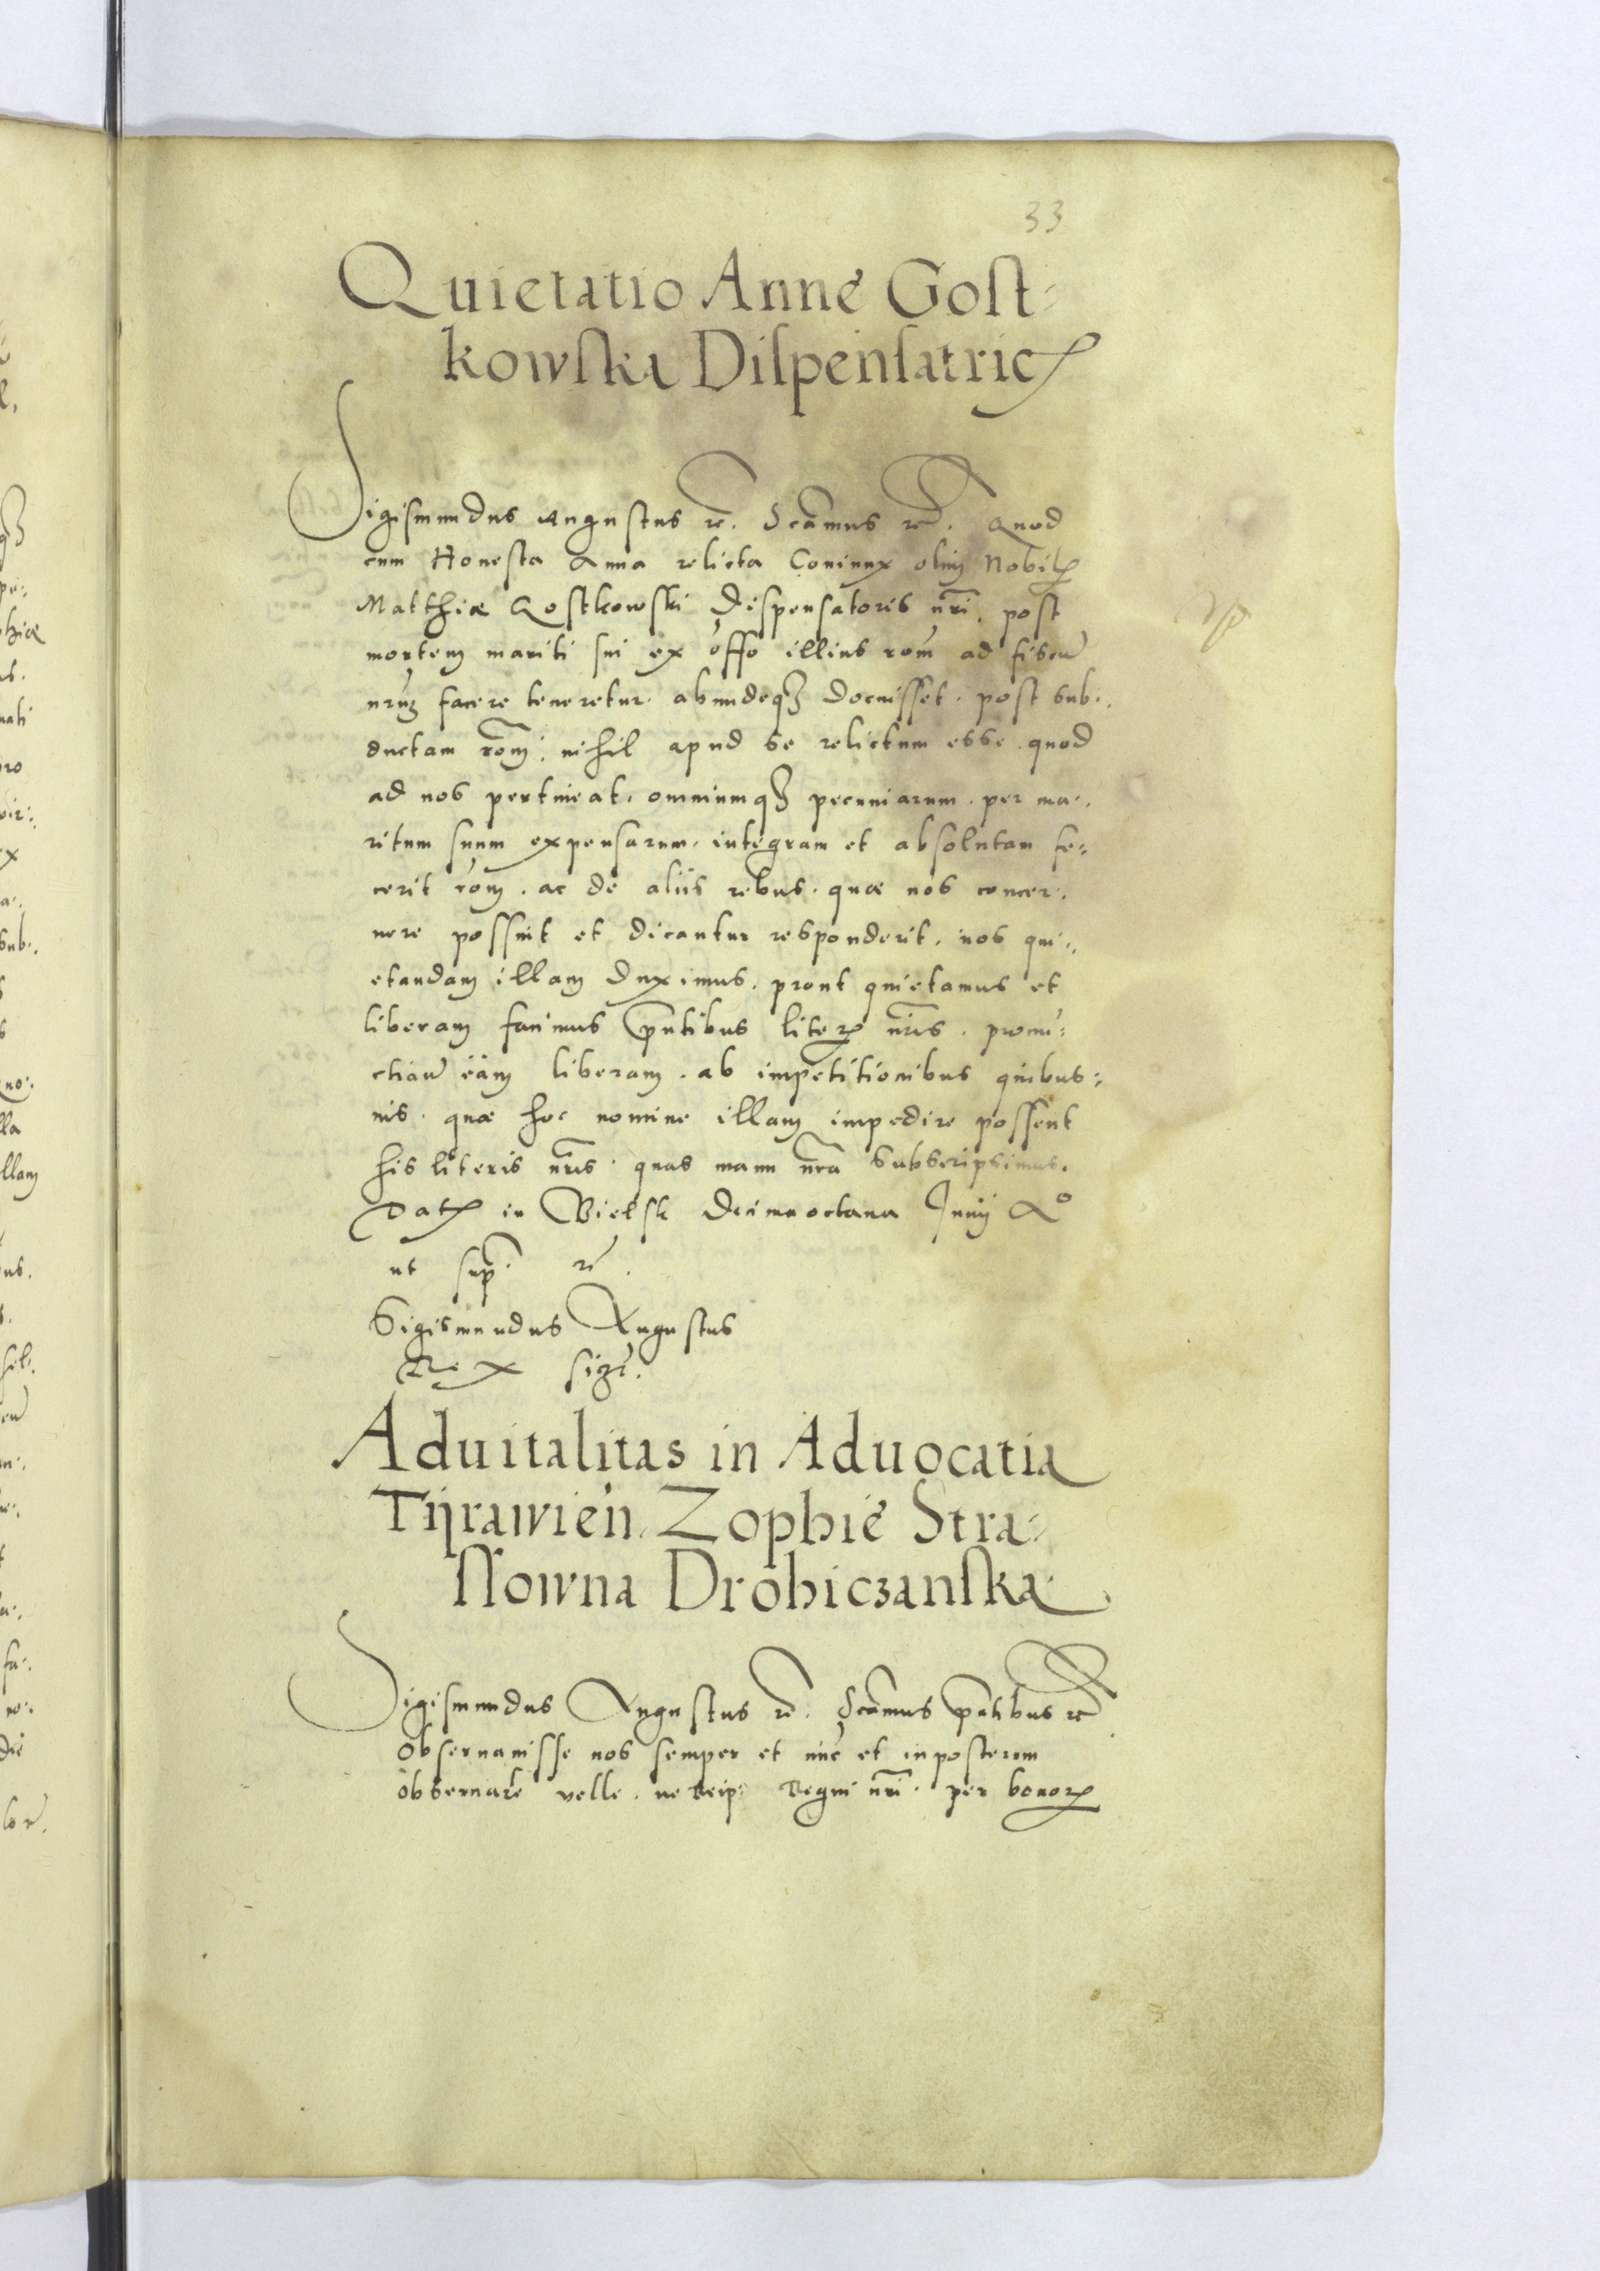 33
Quietatio Anne Gost-
kowska Dispensatric
Sigismundus Augustus etc. Scamus etc. Quod
cum Honesta Anna relicta Coniunx olim Nobil
Matthiæ Gostkowski Dispensatoris nri, post
mortem mariti sui ex offo illius rom ad fiscu
nrum facere teneretur, abundeq docuisset, post sub-
ductam rom, nihil apud se relictum esse, quod
ad nos pertineat, omniumq pecuniarum, per ma-
ritum suum expensarum, integram et absolutam fe-
cerit rom, ac de aliis rebus, quæ nos concer-
nere possint et dicantur responderit, nos qui-
etandam illam duximus, prout quietamus et
liberam facimus pntibus liter nris, pronu-
ctiau eam liberam, ab impetitionibus quibus-
uis, quæ hoc nomine illam impedire possent
his literis nris, quas manu nra subscripsimus.
Dat in Bielsk decima octaua Junij Ao
ut sup. etc.
Sigismundus Augustus
Rex sigt.
Aduitalitas in Aduocatia
Tijrawien, Zophie Stra-
ssowna Drohiczanska
Sigismundus Augustus etc. Scamus pntibus etc
Obseruauisse nos semper et nuc et inposterum
obseruare velle, ne Reip. Regni nri, per bonor